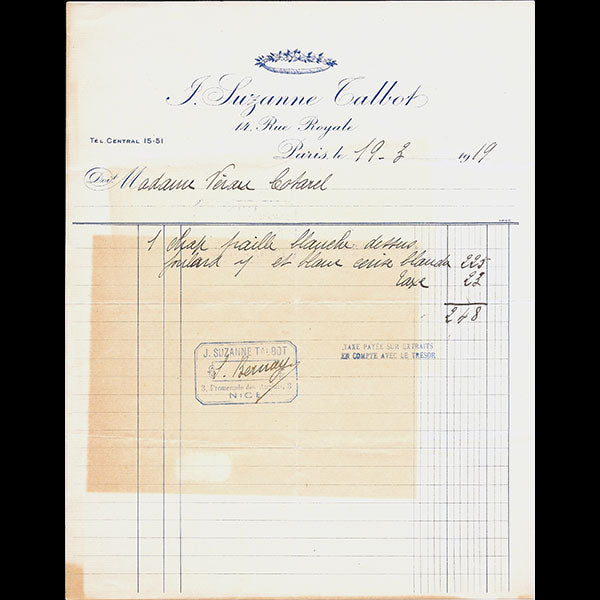 J. Suzanne Talbot
14, Rue Royale
TEL. CENTRAL 15-51
Paris, le 19-3 1919
Doit Madame
1 chap paille blanche dessus
foulard et blanc cerise blanche 225
Taxe 23
248
TAXE PAYÉE SUR EXTRAITS
EN COMPTE AVEC LE TRÉSOR
J. SUZANNE TALBOT
3, Promenade des Anglais, 3
NICE